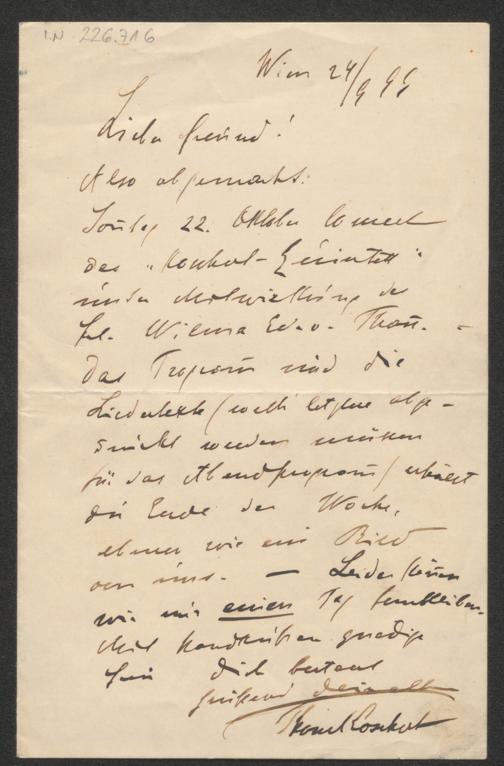 I.N. 226.716
Wien 24/9 99
Lieber Freund!
Also abgemacht:
Sonntag 22. Oktober Concert
des "Koschat-Quintett"
unter Mitwirkung der
Frl. Wilma
Das Program und die
Liedertexte (welch letztere abge-
druckt werden müssen
für das Abendprogram) erhältst
du Ende der Woche,
ebenso wie ein Bild
von uns. — Leider können
wir nur einen Tag fernbleiben.
Mit Handküssen gnädige
Frau Dich bestens
grüßend Dein alter
Thom Koschat